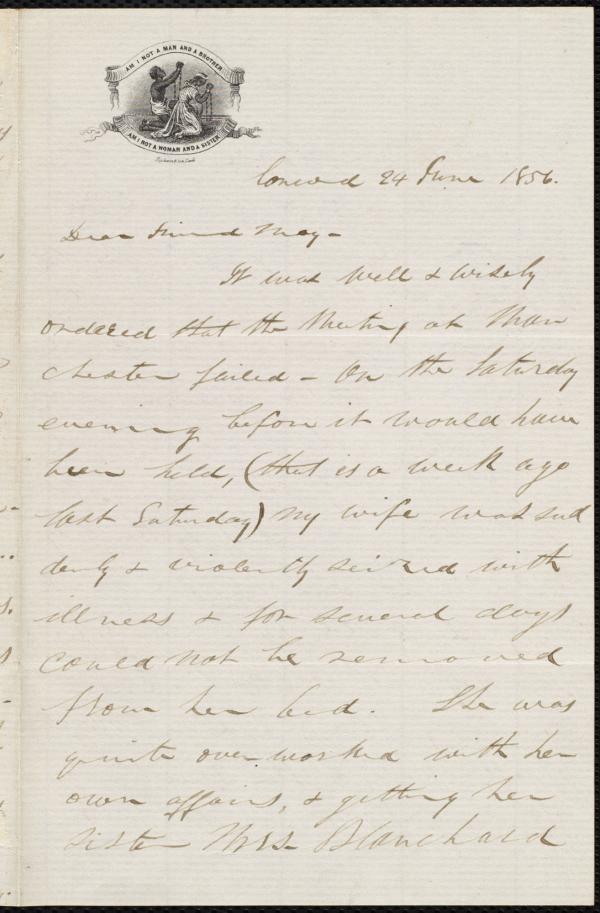 AM I NOT A MAN AND A BROTHER
AM I NOT A WOMAN AND A SISTER
Concord 24 June 1856.
Dear Friend May -
It was well & wisely
ordered that the Meeting at Man
chester failed - On the Saturday
evening before it would have
been held, (that is a week ago
last Saturday) my wife was sud
denly & violently seized with
illness & for several days
could not be removed
from her bed. She was
quite over worked with her
own affairs, & getting her
sister Mrs. Blanchard